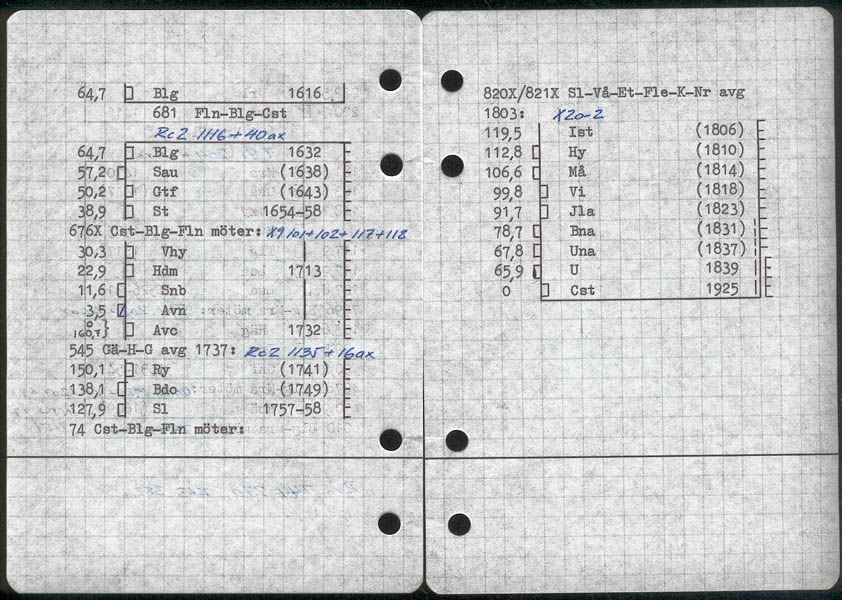 64,7 Blg 1616
681 Fln-Blg-Cst
Rc2 1116+40ax
64,7 Blg 1632
57,2 Sau (1638)
50,2 Gtf (1643)
38,9 St 1654-58
676X Cst-Blg-Fln möter: X9 101+102+117+118
30,3 Vhy
22,9 Hdm 1713
11,6 Snb
3,5 Avn
0
160,7} Avc 1732
545 Gä-H-G avg 1737: Rc2 1135+16ax
150,1 Ry (1741)
138,1 Bdo (1749)
127,9 Sl 1757-58
74 Cst-Blg-Fln möter:
820X/821X Sl-Vå-Et-Fle-K-Nr avg
1803: X20-2
119,5 Ist (1806)
112,8 Hy (1810)
106,6 Må (1814)
99,8 Vi (1818)
91,7 Jla (1823)
78,7 Bna (1831)
67,8 Una (1837)
65,9 U 1839
0 Cst 1925